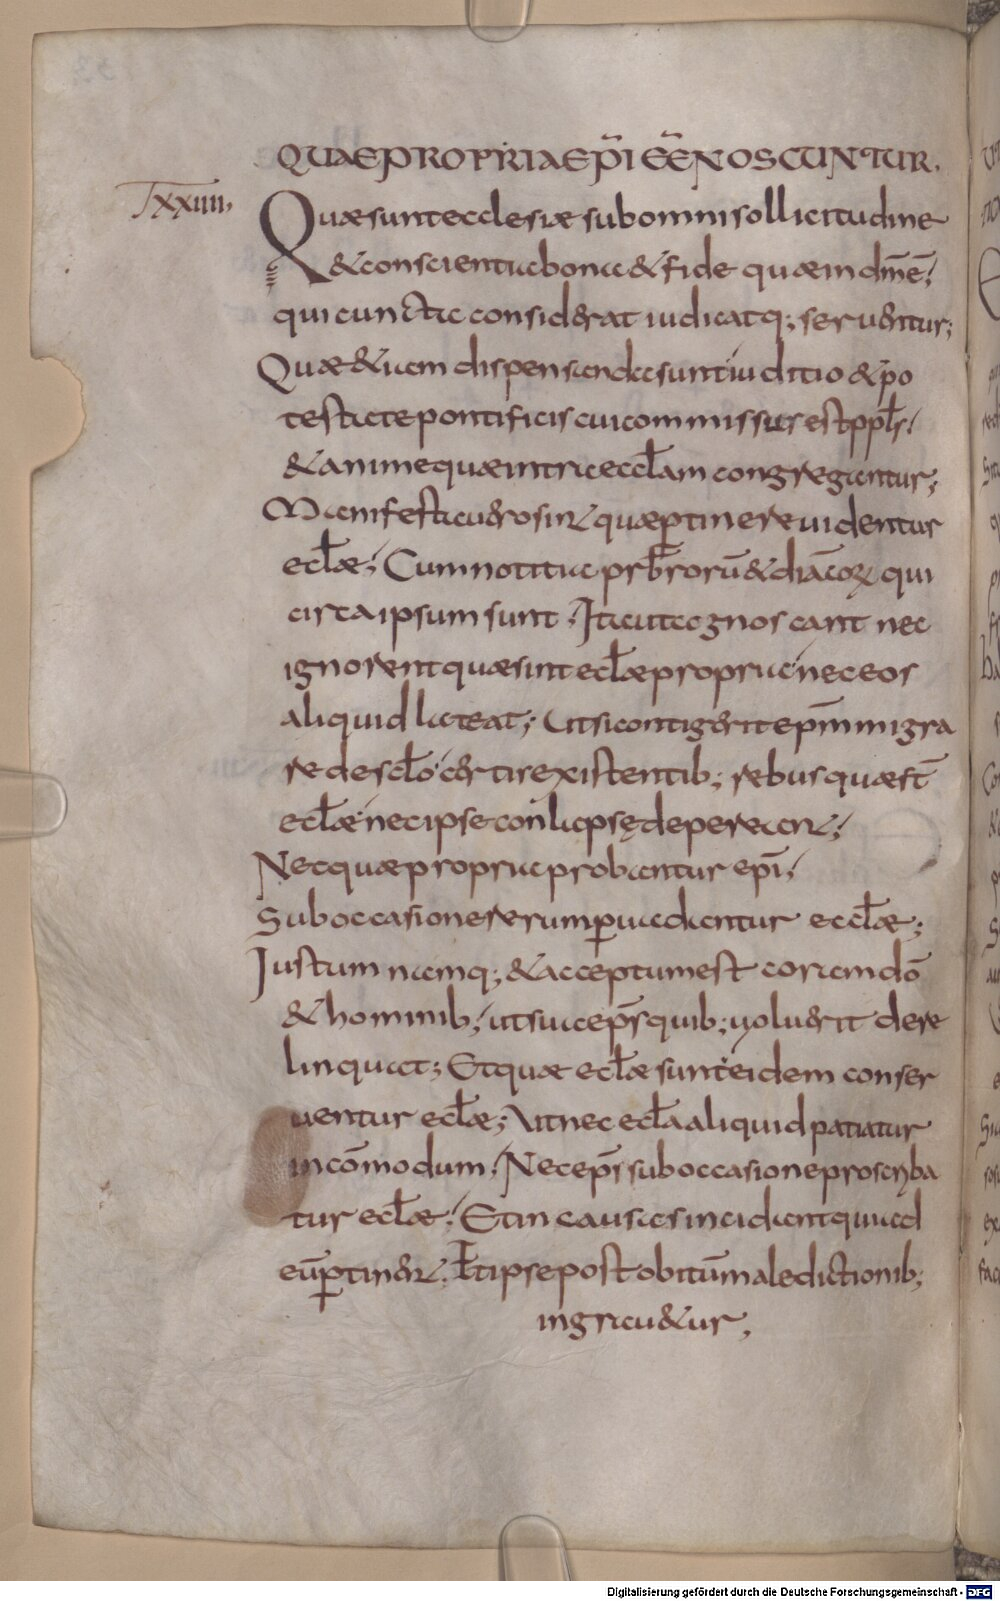 QUAE PROPRIA EP̄I EĒ NOSCUNTUR.
T xxiiii,
Quae sunt ecclesiae sub omni sollicitudine
& conscientia bona & fide quae in dm̄ ē;
qui cuncta considerat iudicatq; seruentur;
Quae & iam dispensanda sunt iuditio & po
testate pontificis cui commissus est ppl̄s;
& anime quae intra eccl̄am congregantur;
Manifesta uero sint quae ptinere uidentur
ecl̄ae; Cum notitia prb̄rorū & diāconꝝ qui
circa ipsum sunt. Ita ut cognoscant nec
ignorent quae sint ecl̄ae propria nec eos
aliquid lateat; Ut si contigerit ep̄m migra
re de scl̄o certis existentib; rebus quae st̄
ecl̄ae nec ipse conlapsę depereant;
Nec quae propria probantur ep̄i;
Sub occasione rerum puadantur eccl̄ae;
Justum namq; & acceptum est coram dō
& hominib; ut sua ep̄s quib; uoluerit dere
linquat; Et quae ecl̄ae sunt eidem conser
uentur ecl̄ae; Ut nec ecl̄a aliquid patiatur
incōmodum. Nec ep̄s sub occasione proscriba
tur ecl̄ae; Et in causas incidant qui ad
eū ptinent. Et ipse post obitū maledictionib;
ingrauetur,
Digitalisierung gefördert durch die Deutsche Forschungsgemeinschaft - DFG